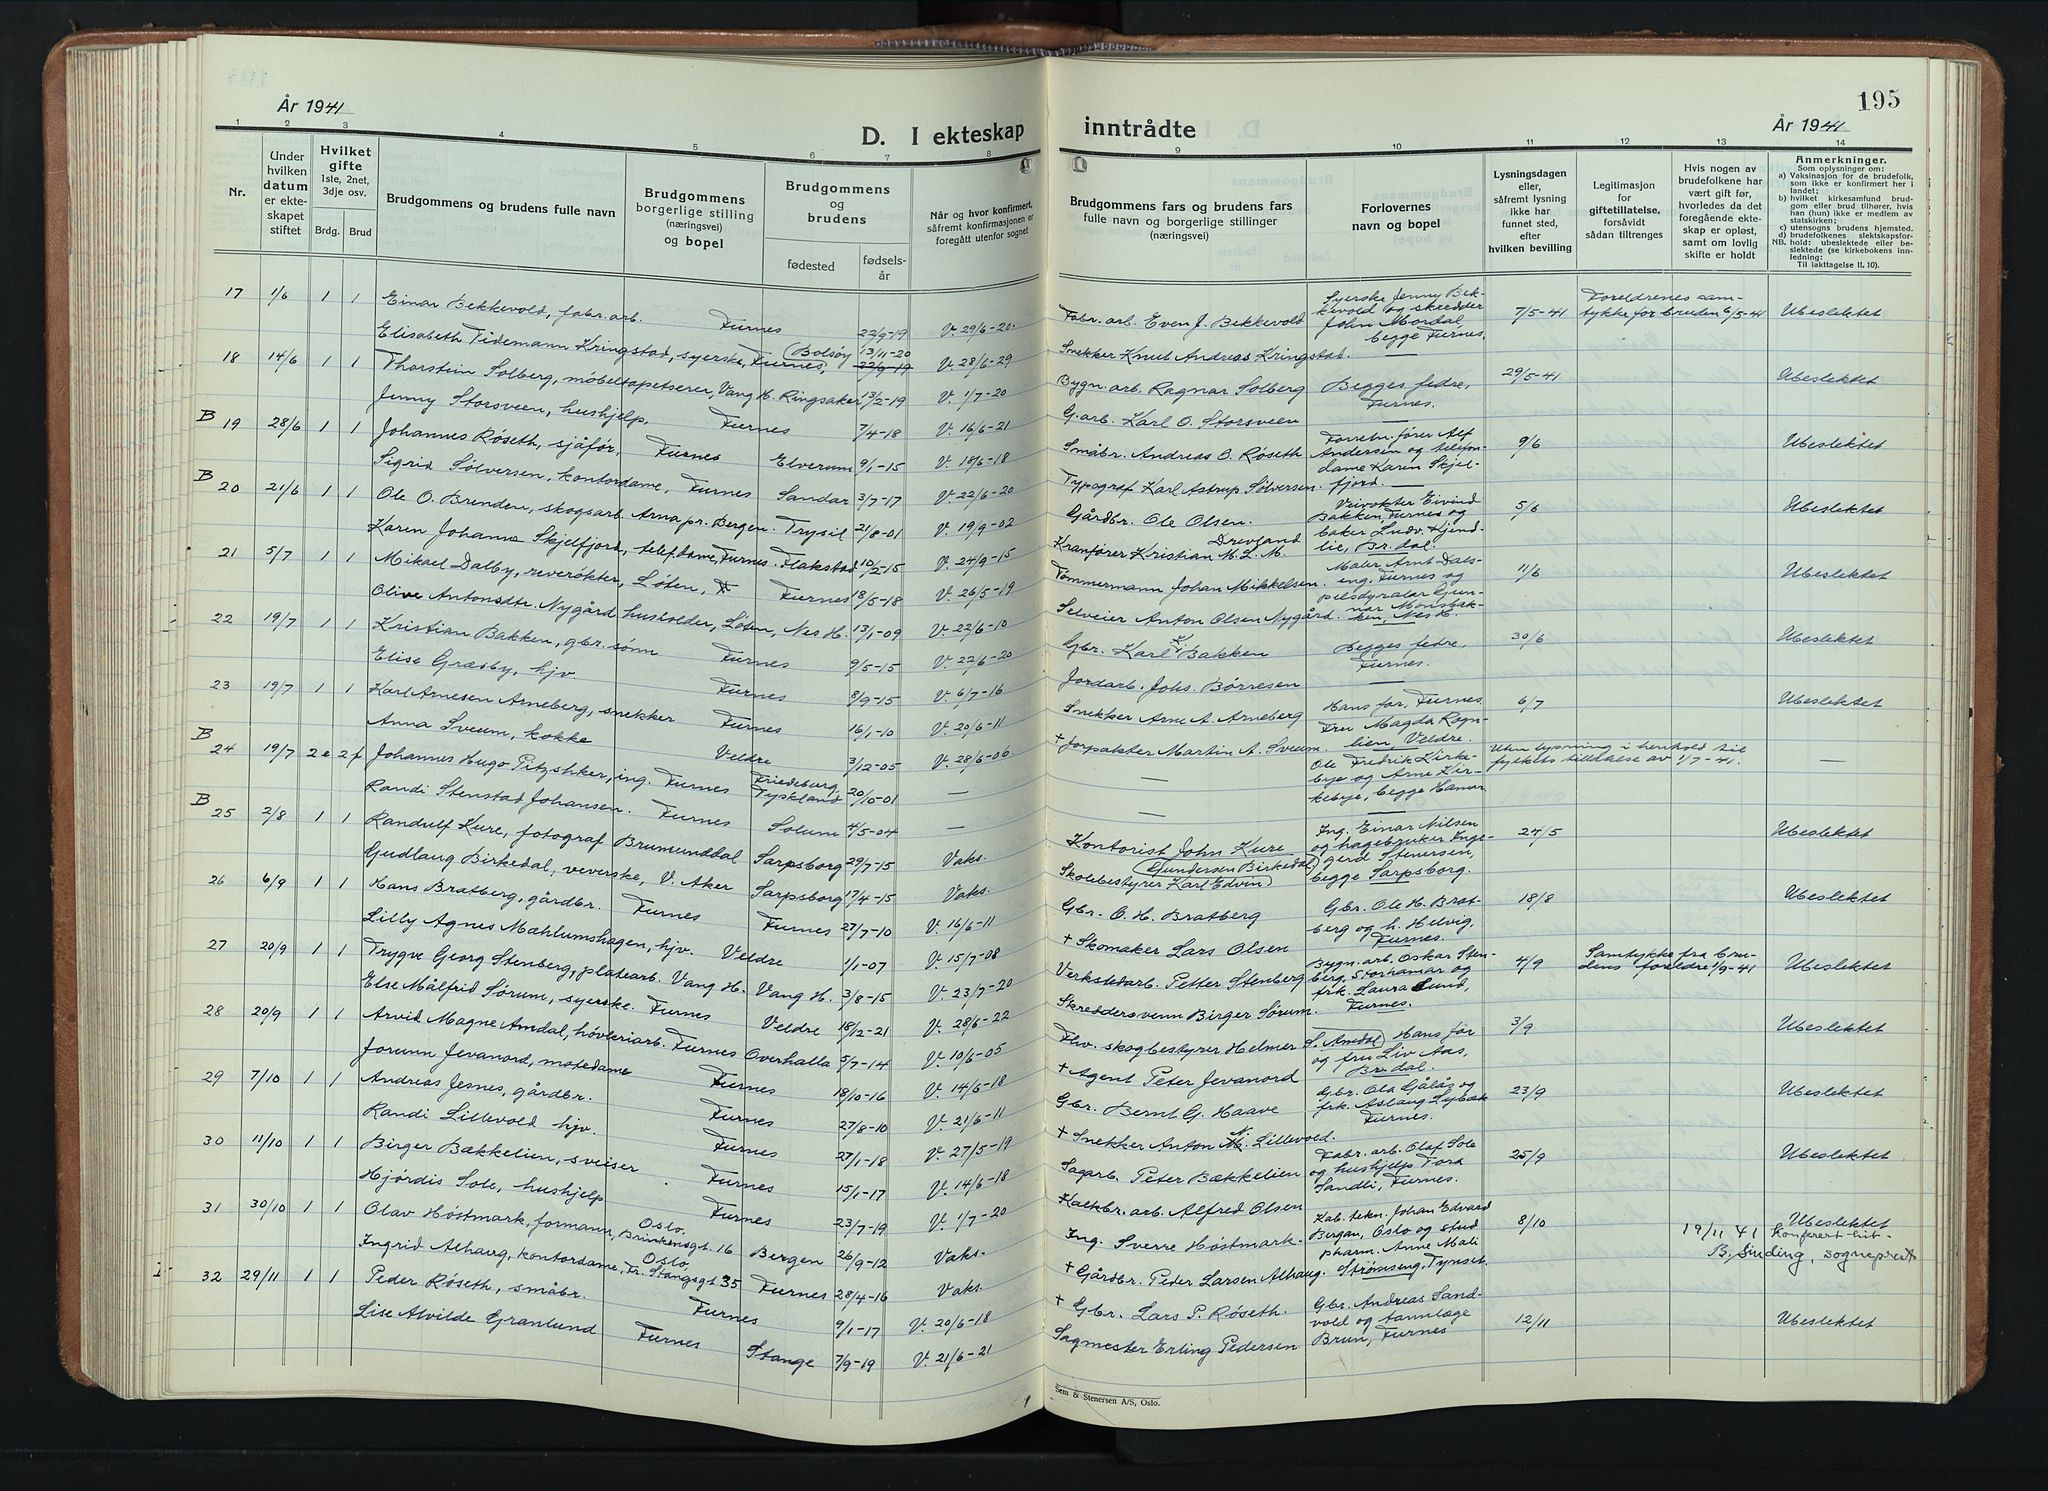 195
År 1941
År 1941
D. I ekteskap inntrådte
1 2 3 4 5 6 7 8 9 10 11 12 13 14
Nr.
Under hvilken datum er ekteskapet stiftet
Hvilket gifte 1ste, 2net, 3dje osv.
Brdg. Brud
Brudgommens og brudens fulle navn
Brudgommens borgerlige stilling (næringsvei) og bopel
Brudgommens og brudens
fødested
fødselsår
Når og hvor konfirmert, såfremt konfirmasjonen er foregått utenfor sognet
Brudgommens fars og brudens fars fulle navn og borgerlige stillinger (næringsvei)
Forlovernes navn og bopel
Lysningsdagen eller, såfremt lysning ikke har funnet sted, efter hvilken bevilling
Legitimasjon for giftetillatelse, forsåvidt sådan tiltrenges
Hvis nogen av brudefolkene har vært gift før, hvorledes da det foregående ekteskap er opløst, samt om lovlig skifte er holdt
Anmerkninger.
Som oplysning om:
a) Vaksinasjon for de brudefolk, som ikke er konfirmert her i landet;
b) hvilket kirkesamfund brudgom eller brud tilhører, hvis han (hun) ikke er medlem av statskirken;
c) utensogns brudens hjemsted.
d) brudefolkenes slektskapsforhold: ubeslektede eller beslektede (se kirkebokens innledning:
NB. Til iakttagelse II. 10).
17 1/6 1 1 Einar Bekkevold, fabr.arb. Furnes 22/9-19 V. 29/6-20. Fabr. arb. Even J. Bekkevold Syerske Jenny Bekkevold og skredder John Mordal, begge Furnes. 7/5-41 Foreldrenes samtykke for bruden 6/5-41 Ubeslektet
Elisabeth Tidemann Kringstad, syerske, Furnes, (Bolsøy 13/11-20 22/9-19 V. 28/6-29 Snekker Knut Andreas Kringstad. —
18 14/6 1 1 Thorstein Solberg, møbeltapetserer, Vang H. Ringsaker 13/2-19 V. 1/7-20 Bygn. arb. Ragnar Solberg Begges fedre, Furnes. 29/5-41 Ubeslektet
Jenny Storsveen, hushjelp, Furnes 7/4-18 V. 16/6-21 G.arb. Karl O. Storsveen —
B 19 28/6 1 1 Johannes Røseth, sjåfør, Furnes Elverum 9/1-15 V. 18/6-18 Småbr. Andreas O. Røseth Forretn.fører Alf Andersen og telefondame Karen Skjelfjord. — 9/6 Ubeslektet
Sigrid Sølversen, kontordame, Furnes Sandar 3/7-17 V. 22/6-20 Typograf Karl Astrup Sølversen
B 20 21/6 1 1 Ole O. Brenden, skogsarb. Arna pr. Bergen. Trysil 21/8-01 V. 19/9-02 Gårdbr. Ole Olsen. Veivokter Eivind Bakken, Furnes og baker Ludv. Hjendlie, Br.dal. 5/6 Ubeslektet
Karen Johanne Skjelfjord, telef.dame, Furnes. Flakstad 10/2-15 V. 24/9-15 Kranfører Kristian M. L. M. Drevland
21 5/7 1 1 Mikael Dalby, reverøkter, Løten, Furnes 18/5-18 V. 26/5-19 Tømmermann Johan Mikkelsen. Maler Arnt Dalseng, Furnes og pelsdyralar Gunnar Monsbakken, Nes H. 11/6 Ubeslektet
Olive Antonsdtr. Nygård husholder, Løten, Nes H. 13/1-09 V. 22/6-10 Selveier Anton Olsen Nygård.
22 19/7 1 1 Kristian Bakken, gbr.sønn Furnes 9/5-15 V. 22/6-20 Gbr. Karl K. Bakken Begges fedre, Furnes. 30/6 Ubeslektet
Elise Græsby, hjv Furnes 8/9-15 V. 6/7-16 Jordarb. Johs. Børresen —
23 19/7 1 1 Karl Arnesen Arneberg, snekker Furnes 16/1-10 V. 20/6-11 Snekker Arne A. Arneberg Hans far, Furnes Fru Magda Rognlien, Veldre. 6/7 Ubeslektet
Anna Sveum, kokke Veldre 3/12-05 V. 28/6-06. + Forpakter Martin A. Sveum.
B 24 19/7 2e 2f Johannes Hugo Pitzshker, ing. Furnes Friedeburg, Tyskland 20/10-01 — — Ole Fredrik Kirkebye og Arne Kirkebye, begge Hamar. Uten lysning i henhold til fylkets tillatelse av 1/7-41. —
Randi Stenstad Johansen. Furnes Solum 4/5-04 — — —
B 25 2/8 1 1 Randulf Kure, fotograf Brumunddal Sarpsborg 29/7-15 Vaks. Kontorist John Kure Ing. Einar Nilsen og hagebruker Ingegerd Stenersen, begge Sarpsborg. 24/5 Ubeslektet
Gudlaug Birkedal, veverske, V. Aker Sarpsborg 17/4-15 Vaks. Skolebestyrer Karl Edvin (Gundersen Birkedal)
26 6/9 1 1 Hans Bratberg, gårdbr. Furnes Furnes 27/7-10 V. 16/6-11 Gbr. O. H. Bratberg Gbr. Ole H. Bratberg og h. Helvig, Furnes. 18/8 Ubeslektet
Lilly Agnes Mæhlumshagen, hjv. Veldre 1/1-07 V. 15/7-08 + Skomaker Lars Olsen
27 20/9 1 1 Trygve Georg Stenberg, platearb. Vang H. Vang H. 3/8-15 V. 23/7-20 Verkstedarb. Petter Stenberg Bygn. arb. Oskar Stenberg, Storhamar og frk. Laura Lund, Furnes. 4/9 Samtykke fra brudens foreldre 1/9-41 Ubeslektet
Else Målfrid Sørum, syerske. Furnes Veldre 18/12-21 V. 28/6-22 Skreddersvenn Birger Sørum.
28 20/9 1 1 Arvid Magne Amdal, høvleriarb. Furnes Overhalla 5/7-14 V. 10/6-05 Fhv. skogbestyrer Helmer S. Amdal) Hans far og fru Liv Aas, Br.dal. 3/9 Ubeslektet
Jorunn Jevanord, motedame Furnes 18/10-16 V. 14/6-18 + Agent Peter Jevanord
29 7/10 1 1 Andreas Jesnes, gårdbr. Furnes 27/8-10 V. 21/6-11 Gbr. Bernt G. Haave Gbr. Ola Gålås og frk. Aslaug Lybæk Furnes. 23/9 Ubeslektet
Randi Lillevold hjv. Furnes 27/1-18 V. 27/5-19 + Snekker Anton N. Lillevold.
30 11/10 1 1 Birger Bækkelien, sveiser Furnes 15/1-17 V. 14/6-18 Sagarb. Peter Bækkelien Fabr. arb. Olaf Sole og hushjelp Tora Sandli, Furnes. 25/9 Ubeslektet
Hjørdis Sole, hushjelp Furnes 23/7-19 V. 1/7-20 Kalkbr. arb. Alfred Olsen
31 30/10 1 1 Olav Høstmark, formann, Oslo, Brinkensgt. 16 Bergen 26/9-12 Vaks. Ing. Sverre Høstmark Kab. tekn. Johan Edvard Birgan, Oslo og stud pharm. Anne Mali Strømseng, Tynset. 8/10 Ubeslektet
19/11 41 Konferert hit B. Sinding, sogneprest
Ingrid Alhaug, kontordame, Oslo, Fr. Stangsgt 35 Furnes 28/4-16 Vaks. + Gårdbr. Peder Larsen Alhaug.
32 29/11 1 1 Peder Røseth, småbr. Furnes 9/1-17 V. 20/6-18 + Gbr. Lars P. Røseth. Gbr. Andreas Sandvold og tannlæge Brun, Furnes 12/11 Ubeslektet
Lise Alvilde Granlund Furnes Stange 7/9-19 V. 21/6-21 Sagmester Erling Pedersen
Sem & Stenersen A/S, Oslo.